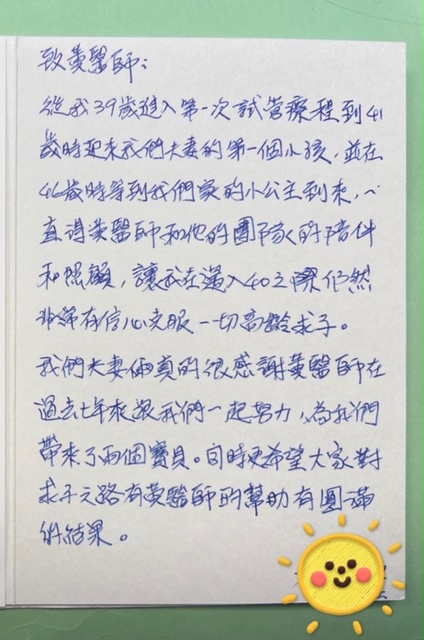 致黃醫師：
從我39歲進入第一次試管療程到41
歲時迎來我們夫妻的第一個小孩，並在
46歲時等到我們家的小公主到來，一
直謝黃醫師和他的團隊的陪伴
和照顧，讓我在邁入40之際仍然
非常有信心克服一切高齡求子。
我們夫妻倆真的很感謝黃醫師在
過去七年來跟我們一起努力，為我們
帶來了兩個寶貝。同時更希望大家對
求子之路有黃醫師的幫助有圓滿
的結果。